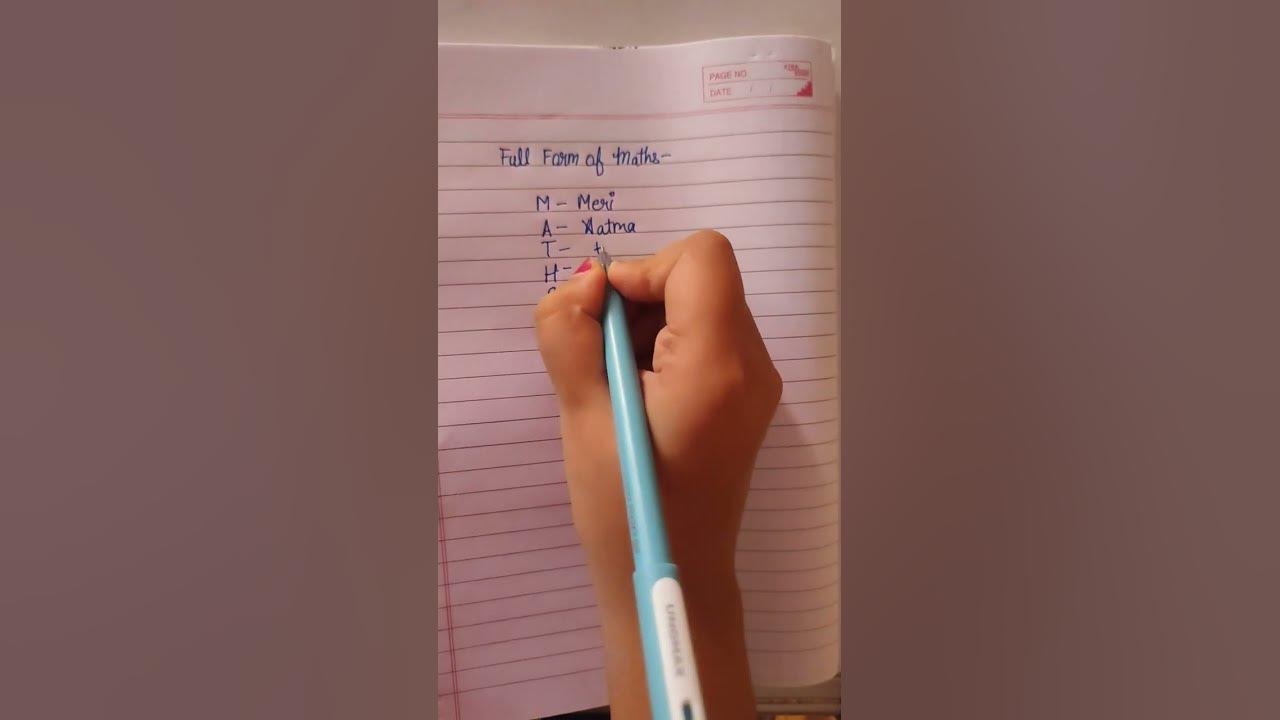 PAGE NO.
DATE / /
Full Form of Maths-
M- Meri
A- Aatma
T- t
H-
LINCPLUS